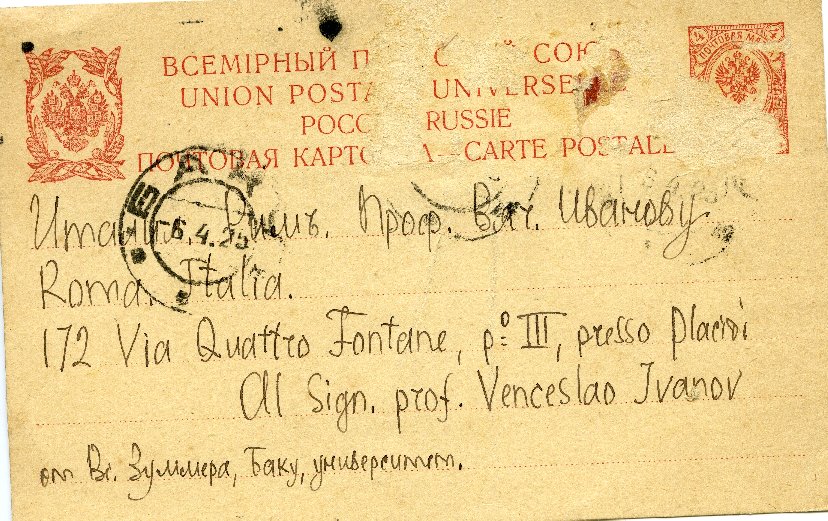 ВСЕМІРНЫЙ П С Й СОЮ
UNION POSTA UNIVERSE
РОСС RUSSIE
ПОЧТОВАЯ КАРТО А—CARTE POSTALE
4 ПОЧТОВАЯ МА 4
БАК
6.4.25
Италия. Римъ. Проф. Вяч. Иванову
Roma. Italia.
172 Via Quattro Fontane, pº III, presso Placidi
Al Sign. prof. Venceslao Ivanov
от Вс. Зуммера, Баку, университет.